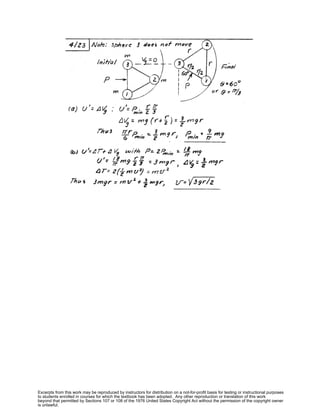 4/23 Note: sphere 3 does not move
Initial m 3 Vg=0 3 r 2
r Final
P 2 m P r/2 r/2 1 θ=60°
m 1 or θ=π/3
(a) U'=ΔVg ; U'=Pmin r/2 π/3
ΔVg = mg(r+r/2) = 3/2 mgr
Thus πr/6 Pmin = 3/2 mgr, Pmin = 9/π mg
(b) U'=ΔT+ΔVg with P=2Pmin = 18/π mg
U' = 18/π mg r/2 π/3 = 3mgr, ΔVg = 3/2 mgr
ΔT = 2(1/2 mv²) = mv²
Thus 3mgr = mv² + 3/2 mgr, v=√3gr/2
Excerpts from this work may be reproduced by instructors for distribution on a not-for-profit basis for testing or instructional purposes
to students enrolled in courses for which the textbook has been adopted. Any other reproduction or translation of this work
beyond that permitted by Sections 107 or 108 of the 1976 United States Copyright Act without the permission of the copyright owner
is unlawful.